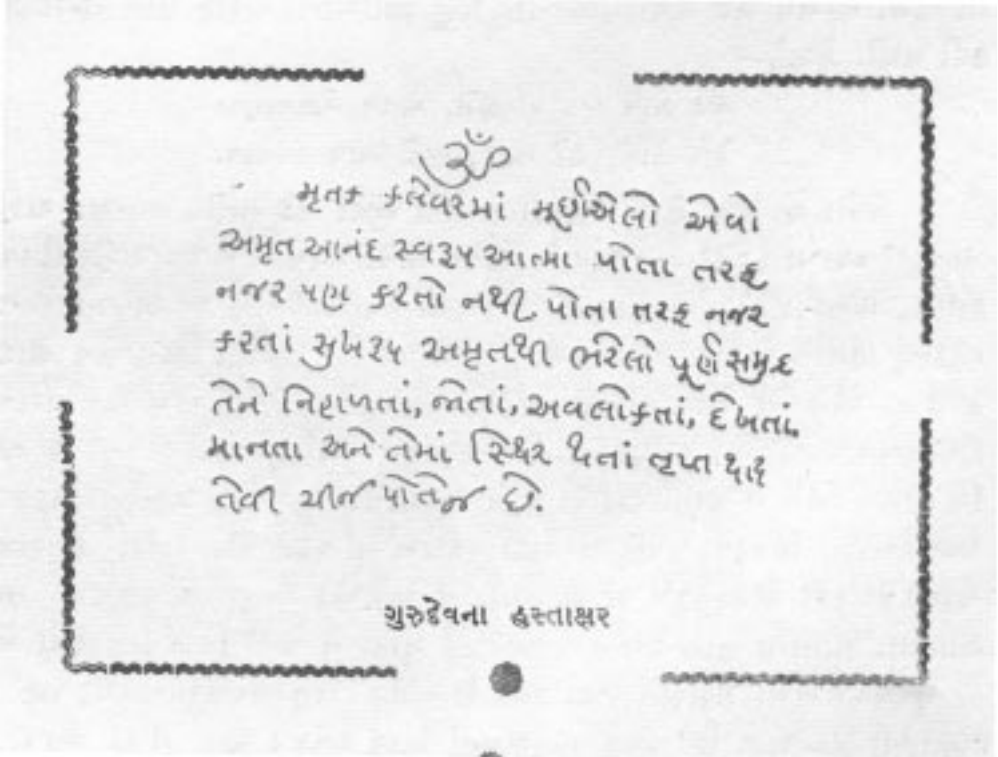 ૐ
મૃતક કલેવરમાં મૂર્છાએલો એવો
અમૃત આનંદ સ્વરૂપ આત્મા પોતા તરફ
નજર પણ કરતો નથી. પોતા તરફ નજર
કરતાં સુખરૂપ અમૃતથી ભરેલો પૂર્ણ સમુદ્ર
તેને નિહાળતાં, જોતાં, અવલોકતાં, દેખતાં,
માનતા અને તેમાં સ્થિર થતાં તૃપ્ત થાઇ
તેવી ચીજ પોતેજ છે.
ગુરુદેવના હસ્તાક્ષર